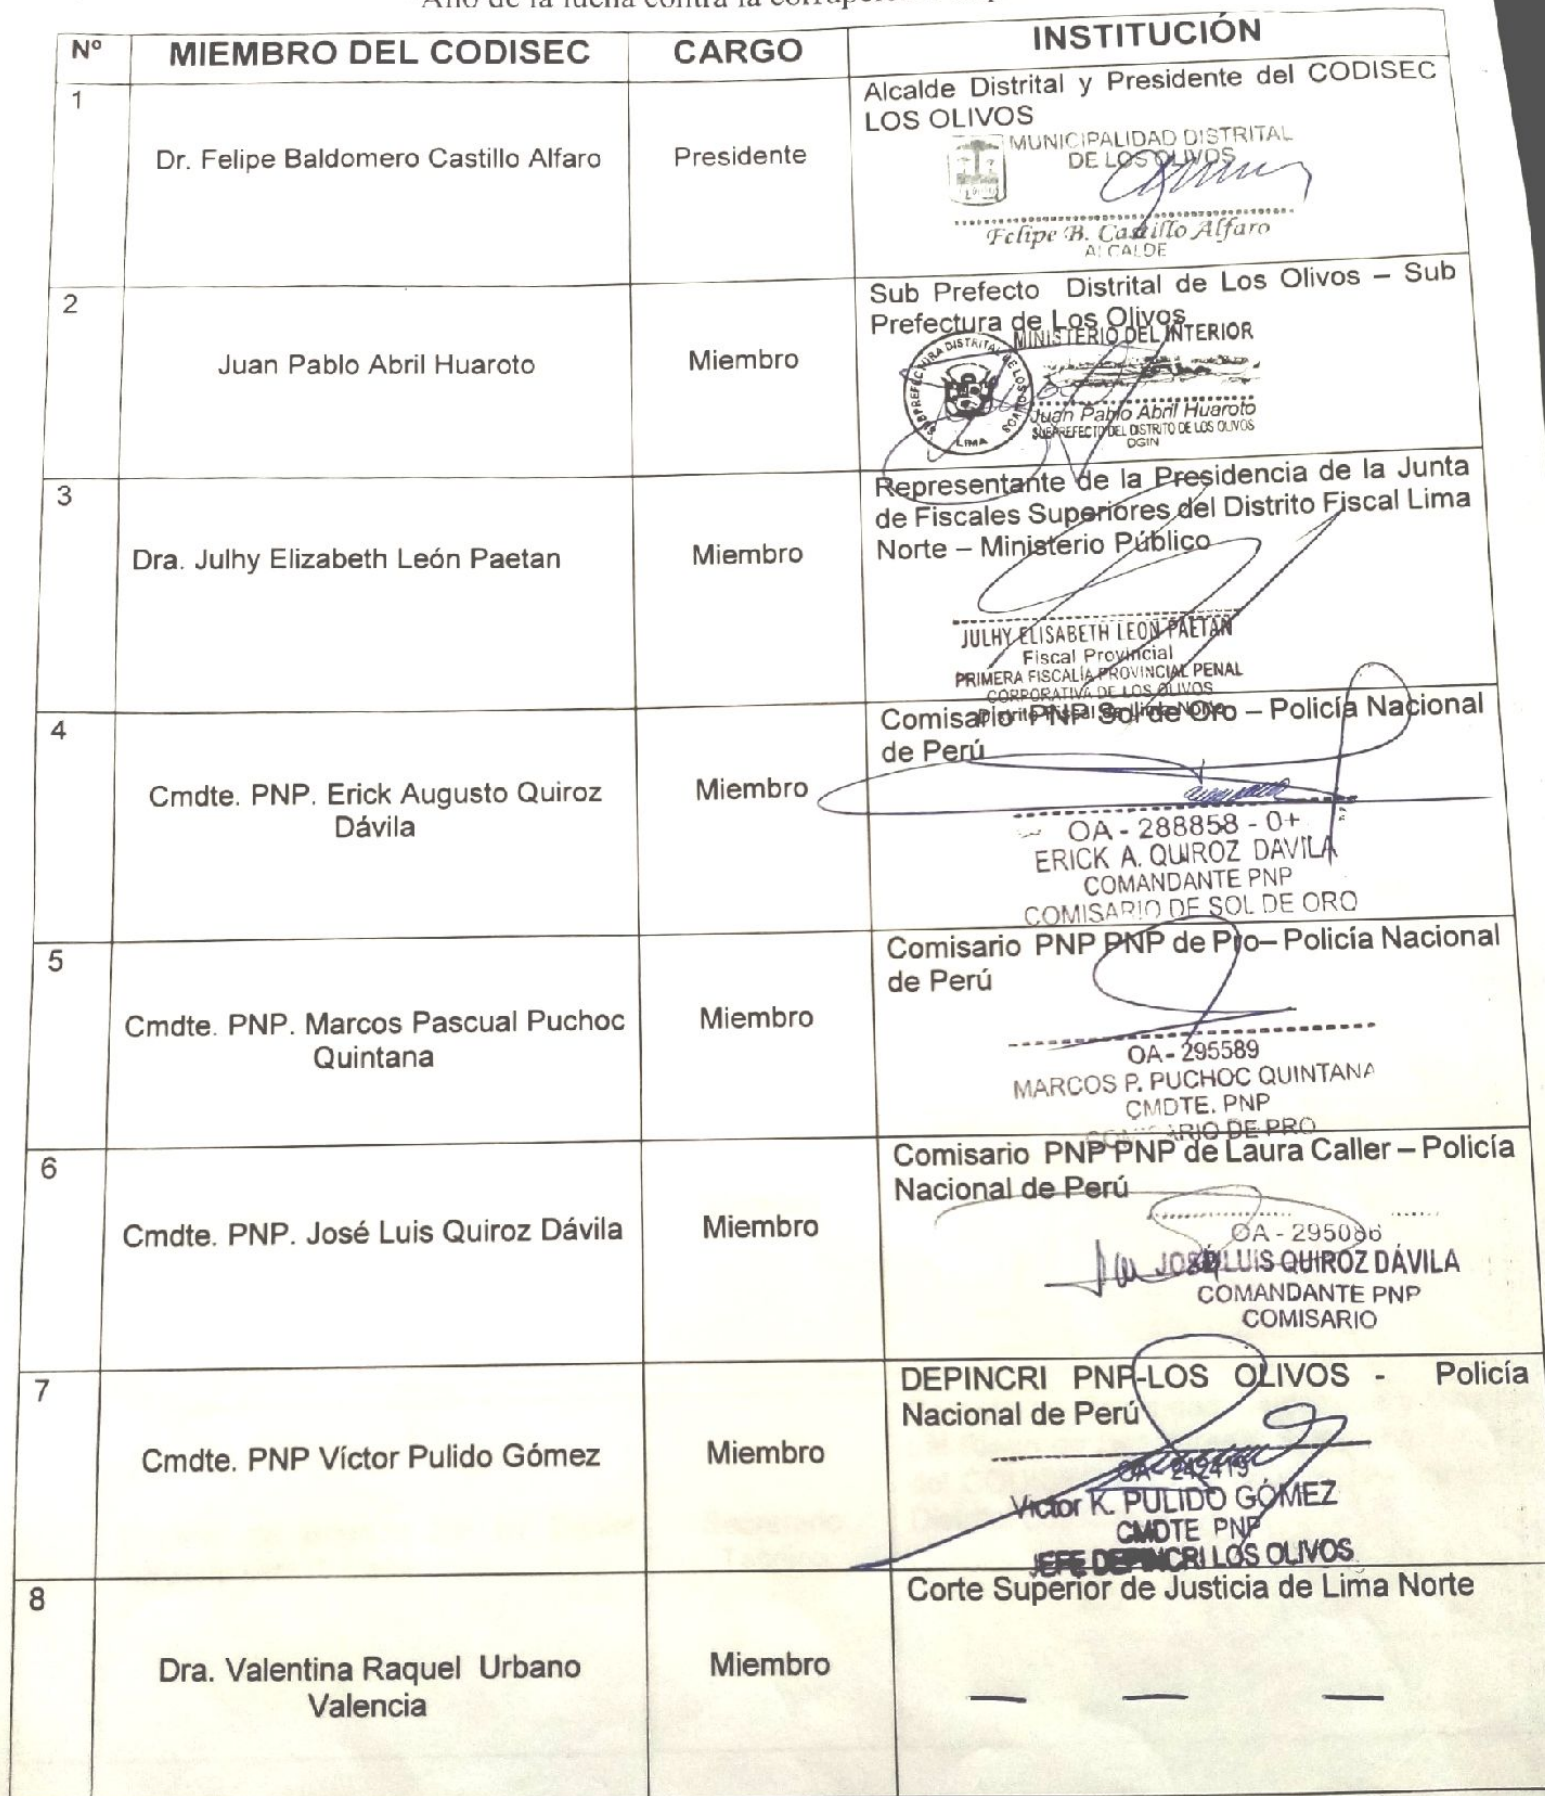 Nº MIEMBRO DEL CODISEC CARGO INSTITUCIÓN
1
Dr. Felipe Baldomero Castillo Alfaro
Presidente
Alcalde Distrital y Presidente del CODISEC
LOS OLIVOS
MUNICIPALIDAD DISTRITAL
DE LOS OLIVOS
Felipe B. Castillo Alfaro
ALCALDE
2
Juan Pablo Abril Huaroto
Miembro
Sub Prefecto Distrital de Los Olivos – Sub
Prefectura de Los Olivos
MINISTERIO DEL INTERIOR
SUBPREFECTURA DISTRITAL DE LOS OLIVOS
LIMA
Juan Pablo Abril Huaroto
SUBPREFECTO DEL DISTRITO DE LOS OLIVOS
DGIN
3
Dra. Julhy Elizabeth León Paetan
Miembro
Representante de la Presidencia de la Junta
de Fiscales Superiores del Distrito Fiscal Lima
Norte – Ministerio Público
JULHY ELISABETH LEON PAETAN
Fiscal Provincial
PRIMERA FISCALÍA PROVINCIAL PENAL
CORPORATIVA DE LOS OLIVOS
Distrito Fiscal de Lima Norte
4
Cmdte. PNP. Erick Augusto Quiroz
Dávila
Miembro
Comisario PNP Sol de Oro – Policía Nacional
de Perú
OA - 288858 - O+
ERICK A. QUIROZ DAVILA
COMANDANTE PNP
COMISARIO DE SOL DE ORO
5
Cmdte. PNP. Marcos Pascual Puchoc
Quintana
Miembro
Comisario PNP PNP de Pro– Policía Nacional
de Perú
OA - 295589
MARCOS P. PUCHOC QUINTANA
CMDTE. PNP
COMISARIO DE PRO
6
Cmdte. PNP. José Luis Quiroz Dávila
Miembro
Comisario PNP PNP de Laura Caller – Policía
Nacional de Perú
OA - 295086
JOSÉ LUIS QUIROZ DÁVILA
COMANDANTE PNP
COMISARIO
7
Cmdte. PNP Víctor Pulido Gómez
Miembro
DEPINCRI PNP-LOS OLIVOS - Policía
Nacional de Perú
OA - 242419
Victor K. PULIDO GÓMEZ
CMDTE PNP
JEFE DEPINCRI LOS OLIVOS
8
Dra. Valentina Raquel Urbano
Valencia
Miembro
Corte Superior de Justicia de Lima Norte